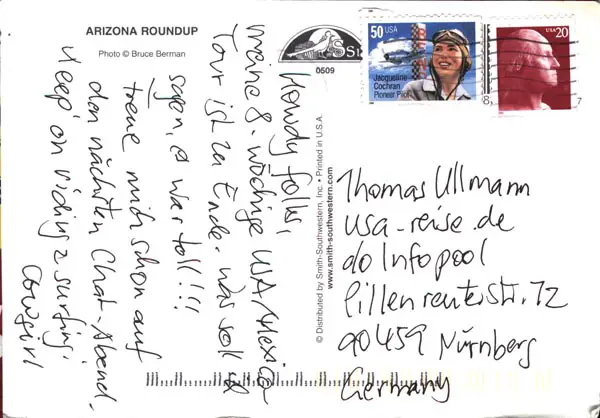 ARIZONA ROUNDUP
Photo © Bruce Berman
0609
50 USA
Jacqueline
Cochran
Pioneer Pilot
USA 20
© Distributed by Smith-Southwestern, Inc. • Printed in U.S.A.
www.smith-southwestern.com
Howdy folks,
meine 8-wöchige USA/Mexico
Tour ist zu Ende. Was soll ich
sagen, es war toll!!!
Freue mich schon auf
den nächsten Chat-Abend.
Keep on riding & surfing,
Cowgirl
Thomas Ullmann
usa-reise.de
c/o Infopool
Pillenreuterstr. 72
90459 Nürnberg
Germany